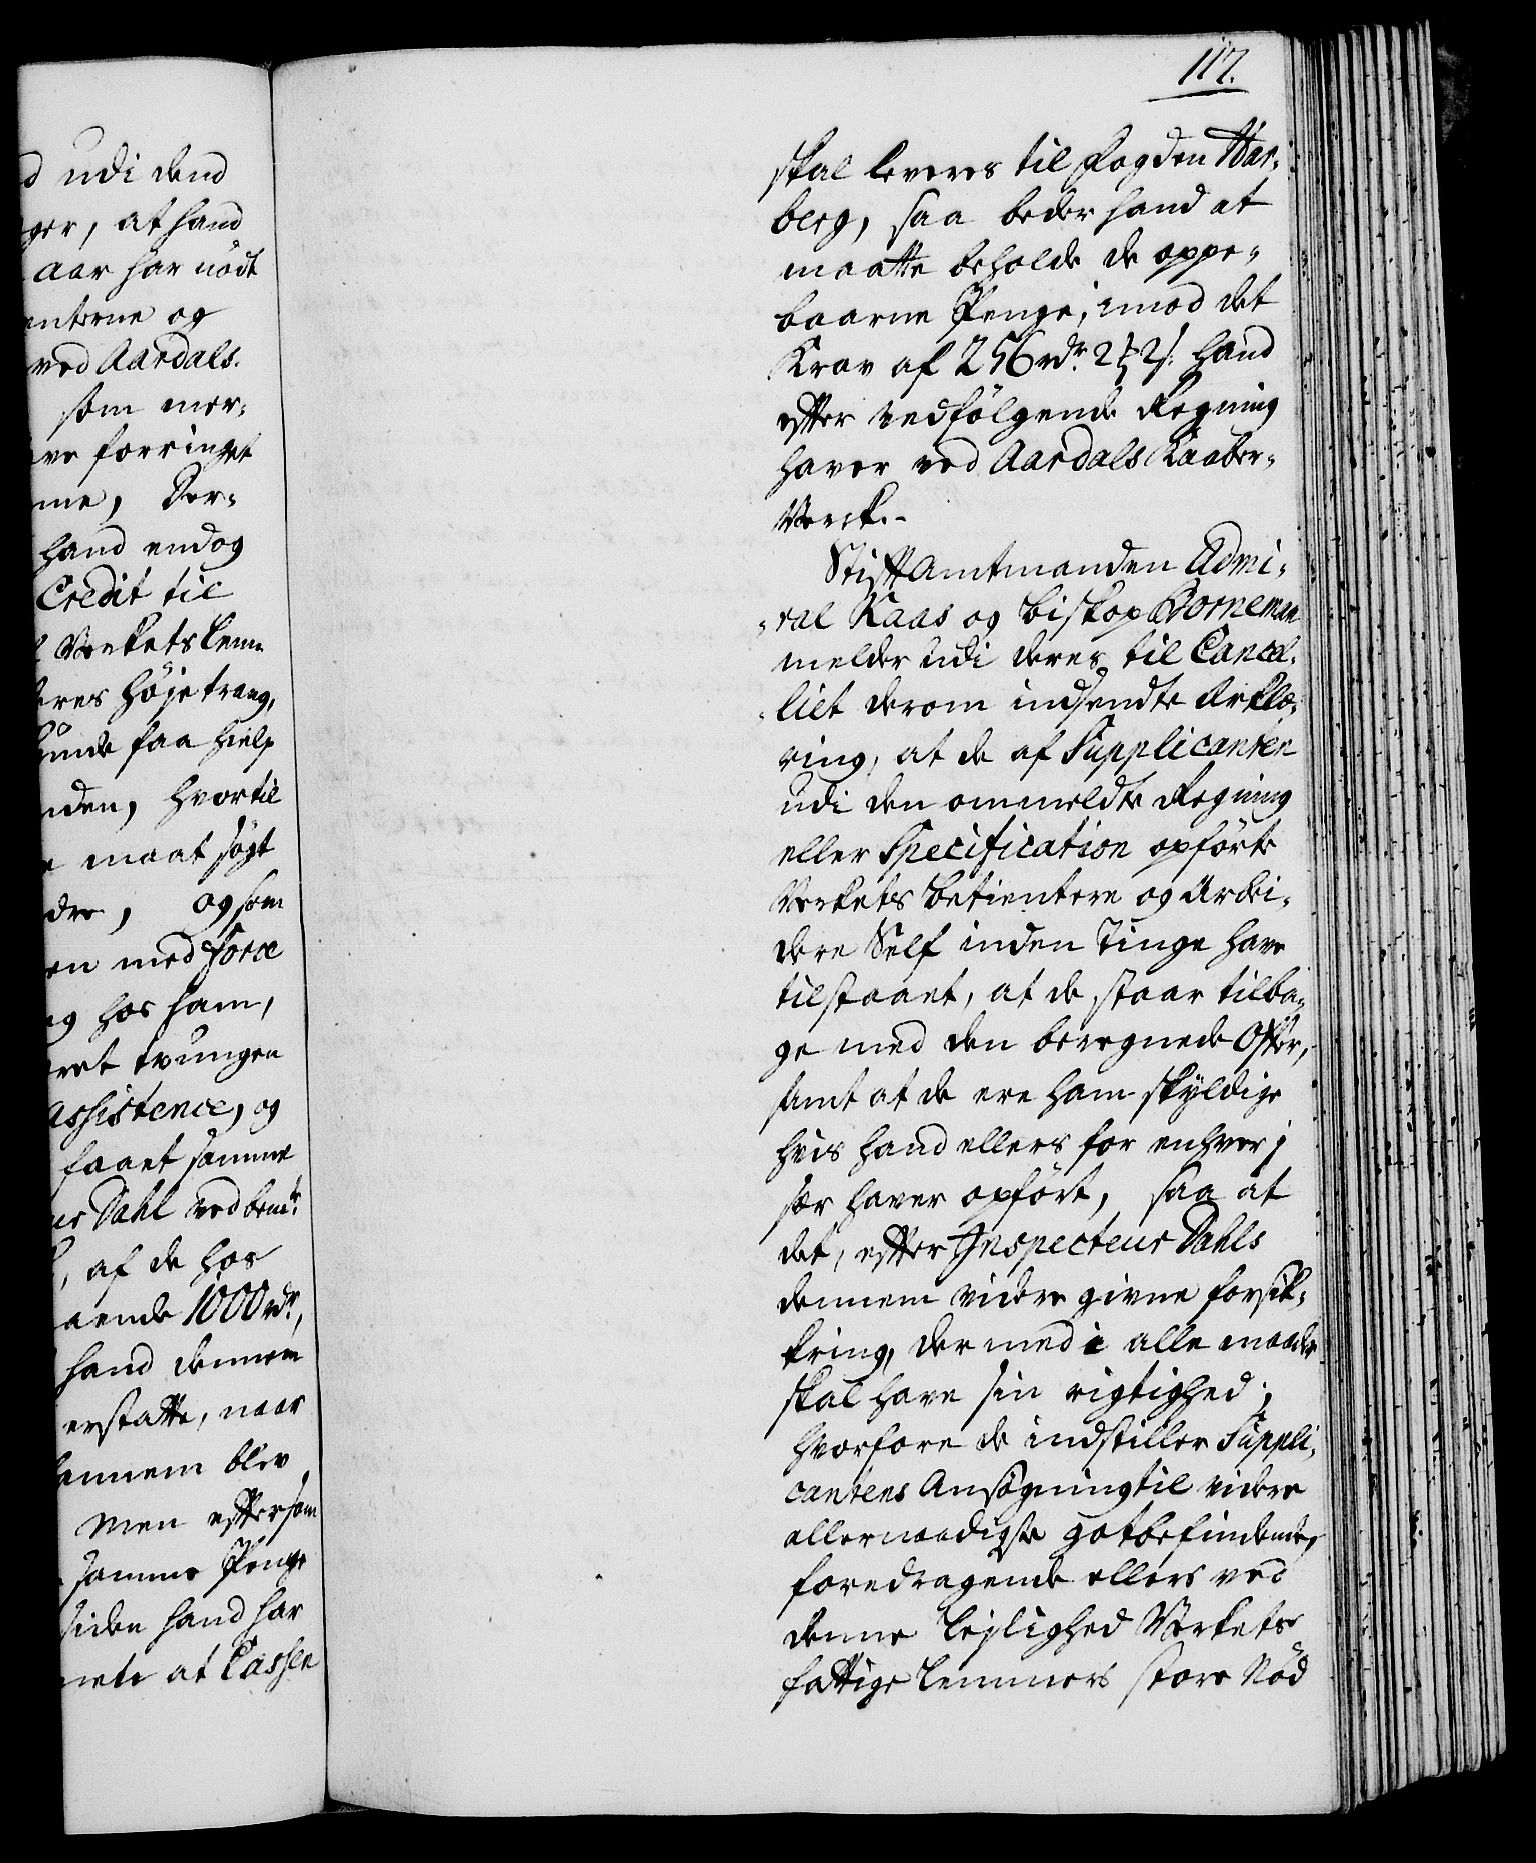 d udi dend
ger, at hand
aar har nödt
enterne og
ved Aardals.
som mer-
ve forringet
me, Der-
hand endog
Credit til
Verkets Lem-
eres höje trang,
unde faa hielp
nden, hvortil
e maat sögt
dre, og som
en med Force
eg hos ham,
ret tvungen
assistence, og
faaet samme
ur Dahl ved bemte
, af de hos
aende 1000 rdr,
hand dennem
erstatte, naar
annem blev
Men eftersom
samme Penge
siden hand har
ete at Cassen
117.
skal leveres til Fogden Har-
berg, saa beder hand at
maatte beholde de oppe-
baarne Penge, imod det
Krav af 256 rdr. 2 ʒ 2 s. hand
efter vedfölgende Regning
haver ved Aardals Kaaber-
Verck.-
Stiftamtmanden Admi-
ral Kaas og Biskop Borneman
melder udi deres til Cancel-
liet derom indsendte Erklæ-
ring, at de af Supplicanten
udi den ommeldte Regning
eller Specification opförte
Verkets betientere og Arbei-
dere Self inden Tinge have
tilstaaet, at de staar tilba-
ge med den beregnede Offer,
samt at de ere ham skyldige
hvis hand ellers for enhver j
sær haver opfört, saa at
det, efter Inspecteur Dahls
dennem videre givne forsik-
kring, der med i alle maader
skal have sin rigtighed;
hvorfore de indstiller Suppli-
cantens Ansögning til videre
allernaadigste gotbefindende,
foredragende ellers ved
denne leylighed Verkets
fattige Lemmers store Nöd